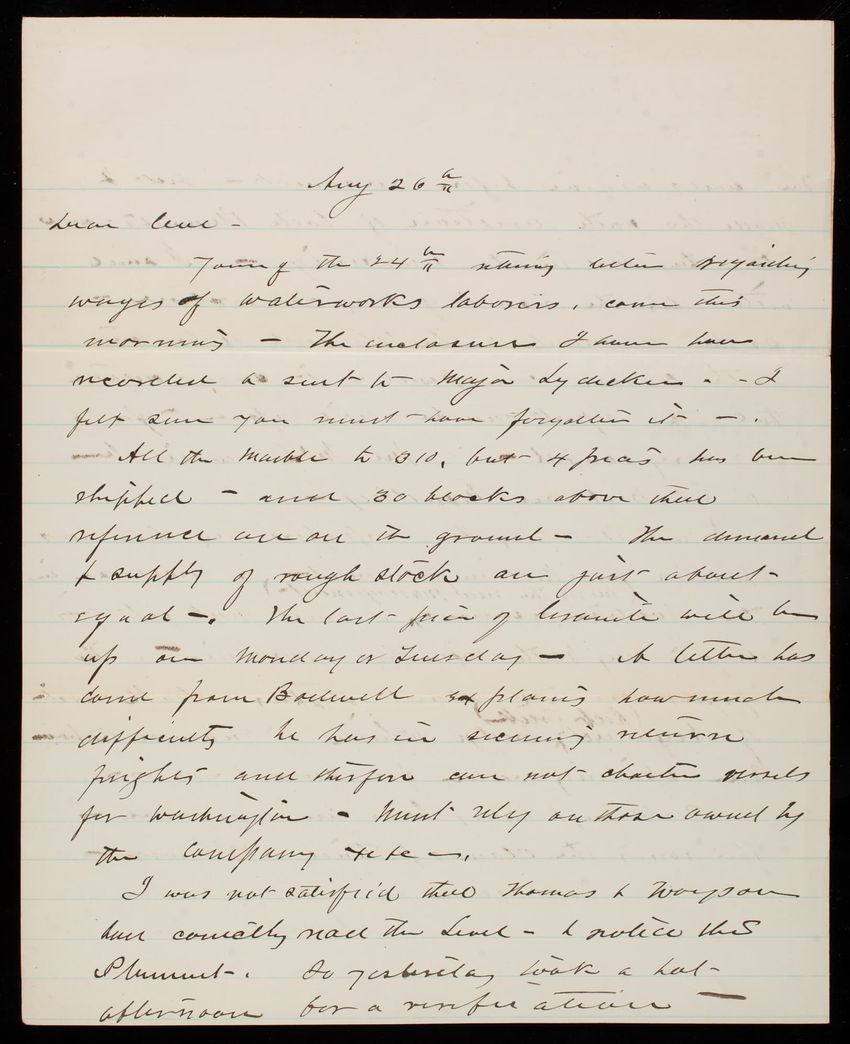 Aug 26th
Dear Cleve -
Yours of the 24th returning letter regarding
wages of waterworks laborers, came this
morning - The enclosure I have had
recorded & sent to Major Lydecker. - I
felt sure you must have forgotten it -.
All the Marble to 310, but 4 pieces has been
shipped - and 30 blocks above that
reference are on the ground - The demand
& supply of rough stock are just about
equal -. The last piece of Granite will be
up on Monday or Tuesday - A letter has
come from Bodwell explaining how much
difficulty he has in securing return
freights and therefore can not charter vessels
for Washington - Must rely on those owned by
the company &c &c -.
I was not satisfied that Thomas &
had correctly read the Level - & notice the
Plummet -. So yesterday took a hot
afternoon for a verification -